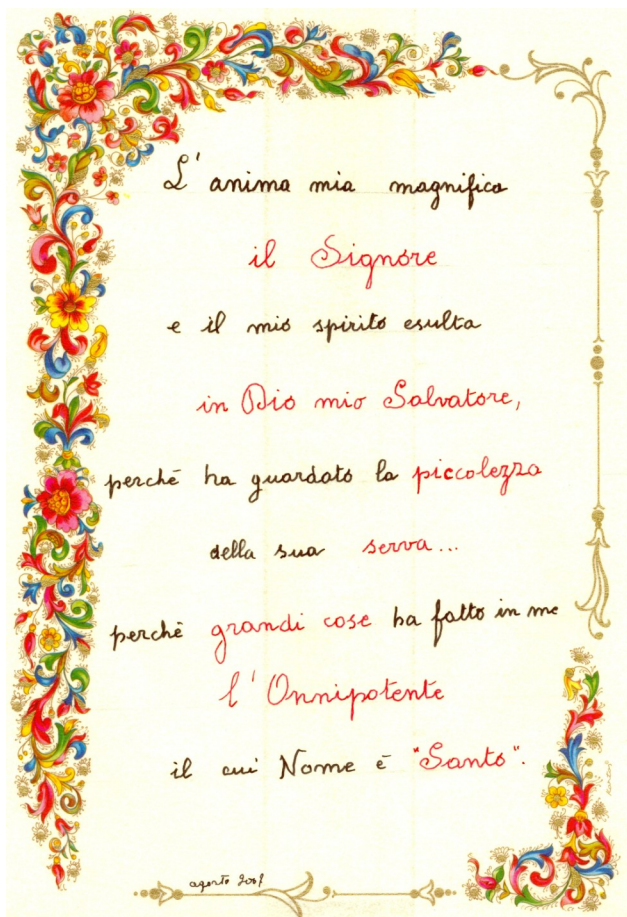 L'anima mia magnifica
il Signore
e il mio spirito esulta
in Dio mio Salvatore,
perchè ha guardato la piccolezza
della sua serva...
perchè grandi cose ha fatto in me
l'Onnipotente
il cui Nome è "Santo".
agosto